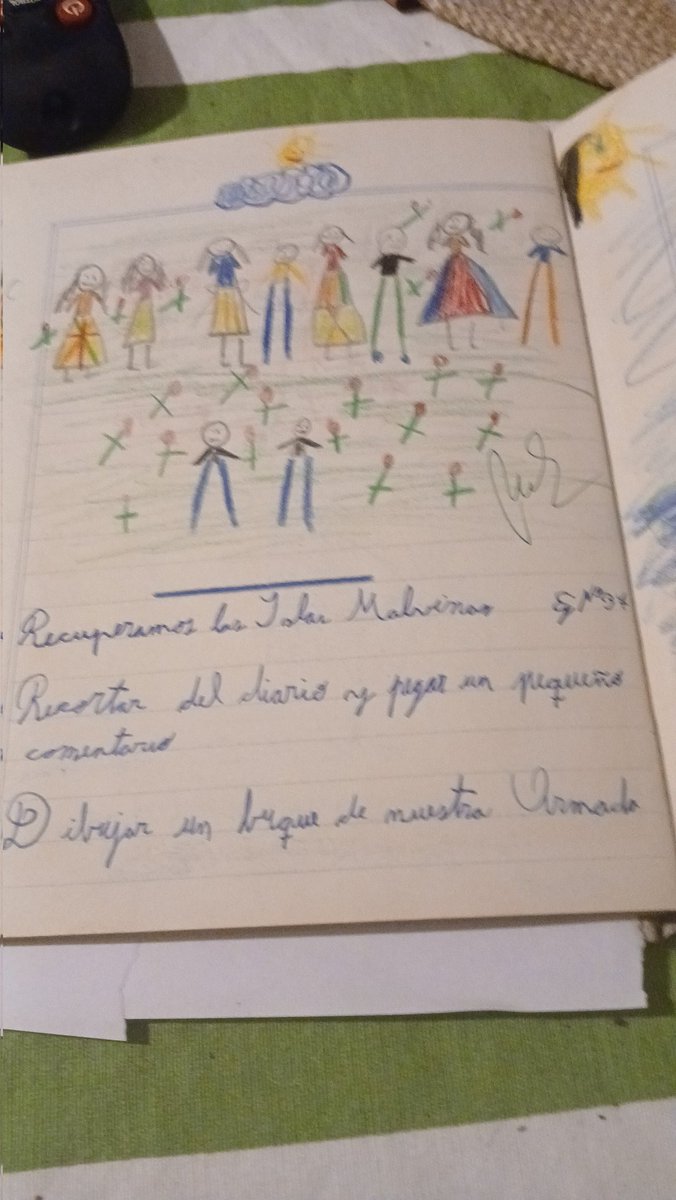 Recuperamos las Islas Malvinas Ej Nº 34
Recortar del diario y pegar un pequeño
comentario
Dibujar un buque de nuestra Armada